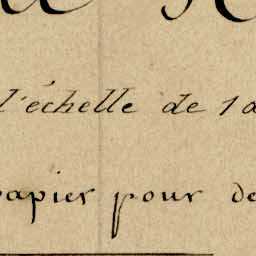 l'échelle de 1 a
papier pour de